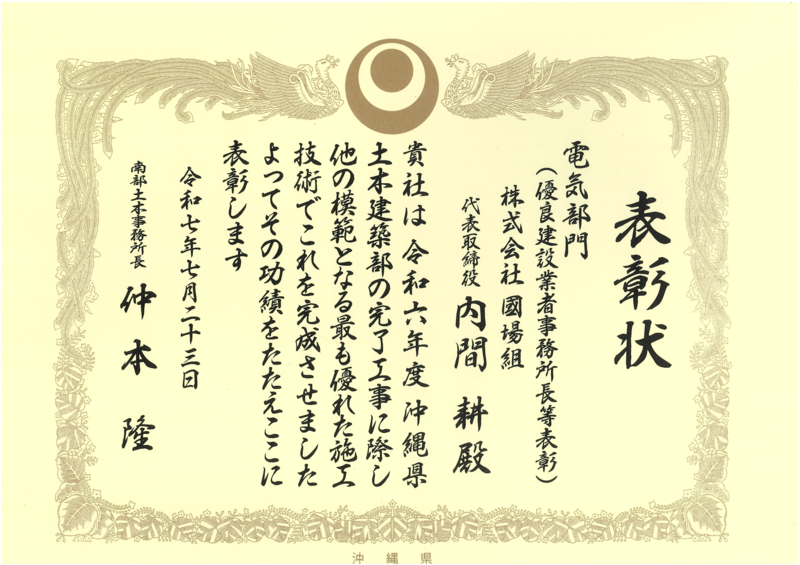 表彰状
電気部門
(優良建設業者事務所長等表彰)
株式会社 國場組
代表取締役 内間 耕 殿
貴社は 令和六年度 沖縄県
土木建築部の完了工事に際し
他の模範となる最も優れた施工
技術でこれを完成させました
よってその功績をたたえここに
表彰します
令和七年七月二十三日
南部土木事務所長 仲本 隆
沖縄県